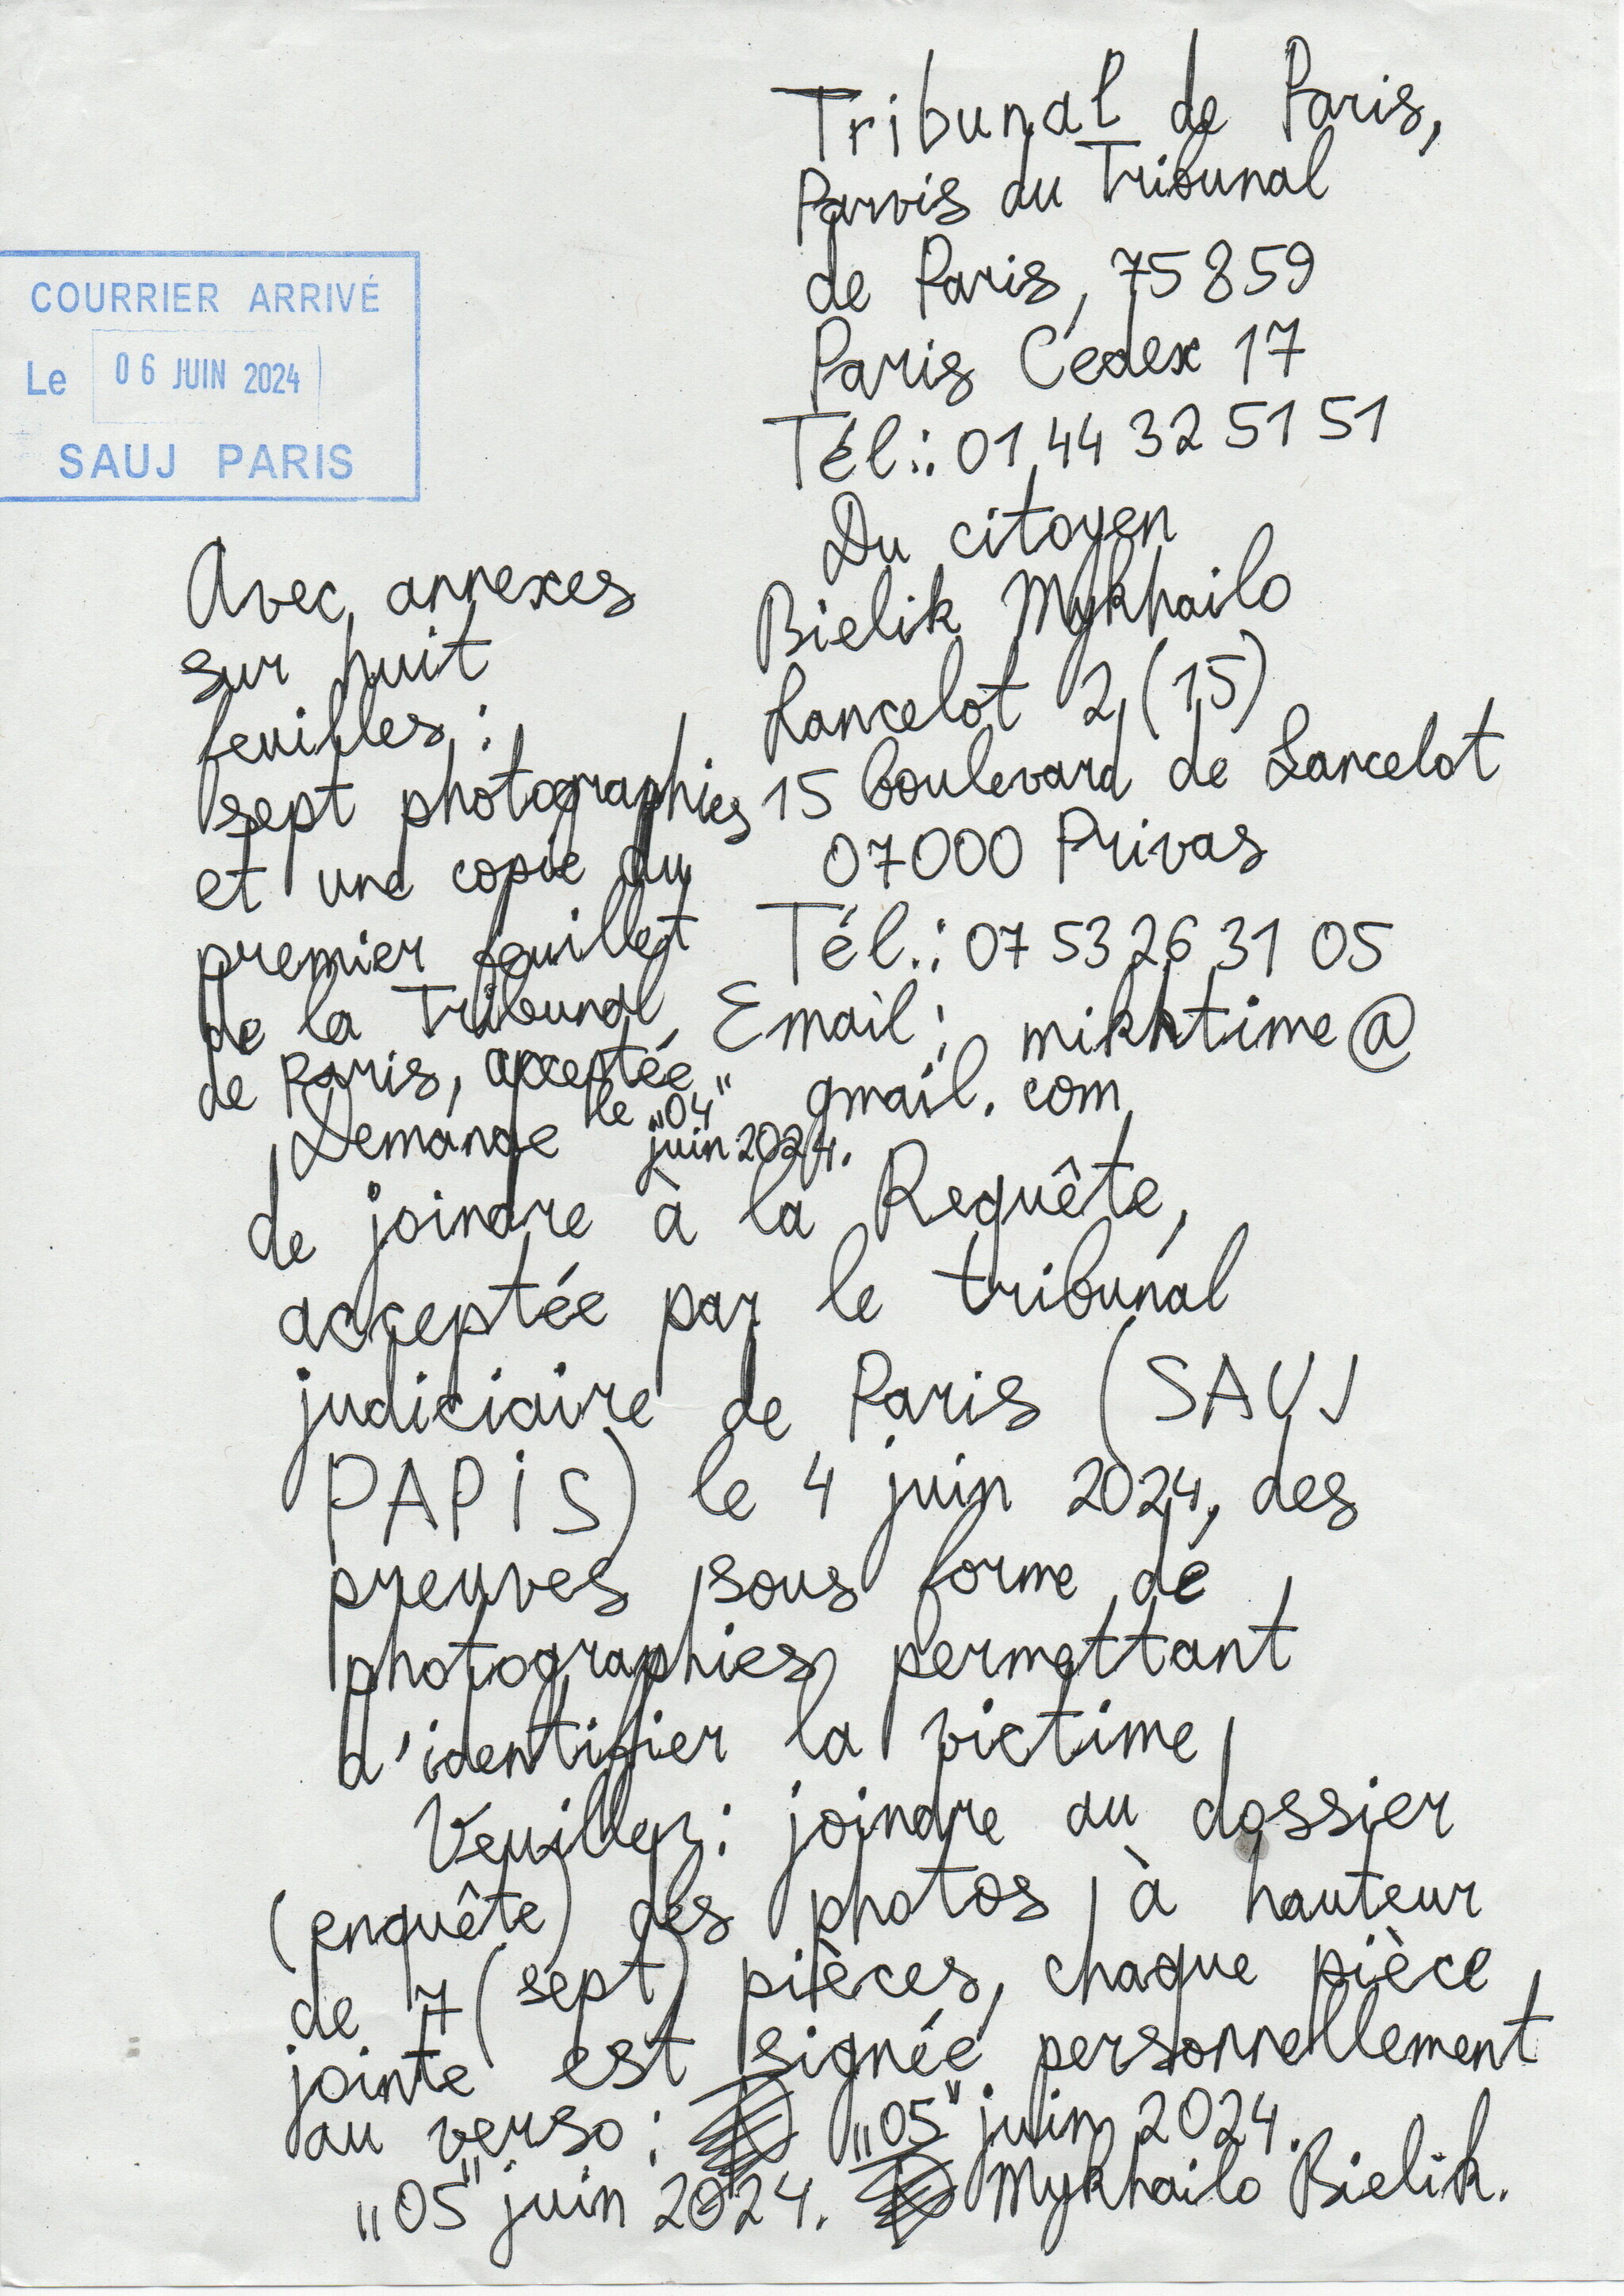 Tribunal de Paris,
Parvis du Tribunal
de Paris, 75859
Paris Cedex 17
Tél.: 01 44 32 51 51
Du citoyen
Bielik Mykhailo
Lancelot 2 (15)
15 boulevard de Lancelot
07000 Privas
Tél.: 07 53 26 31 05
Email: mikhtime@
gmail.com
COURRIER ARRIVÉ
Le 06 JUIN 2024
SAUJ PARIS
Avec annexes
sur huit
feuilles:
sept photographies
et une copie du
premier feuillet
de la Tribunal
de Paris, acceptée
le „04"
juin 2024.
Demande
de joindre à la Requête,
acceptée par le tribunal
judiciaire de Paris (SAUJ
PAPIS) le 4 juin 2024, des
preuves sous forme de
photographies permettant
d'identifier la victime
Veuillez: joindre au dossier
(enquête) des photos à hauteur
de 7 (sept) pièces, chaque pièce
jointe est signée personnellement
au verso: „05" juin 2024.
„05" juin 2024. Mykhailo Bielik.